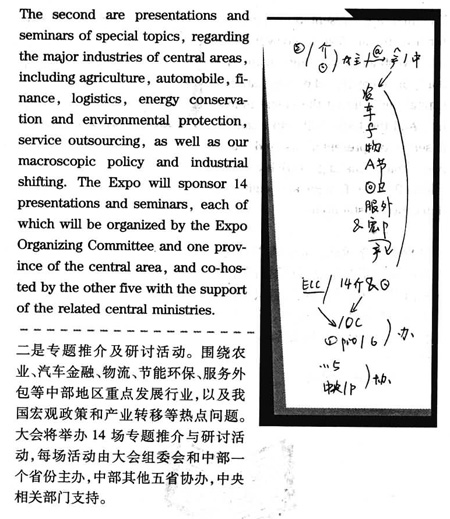 The second are presentations and
seminars of special topics, regarding
the major industries of central areas,
including agriculture, automobile, fi-
nance, logistics, energy conserva-
tion and environmental protection,
service outsourcing, as well as our
macroscopic policy and industrial
shifting. The Expo will sponsor 14
presentations and seminars, each of
which will be organized by the Expo
Organizing Committee and one prov-
ince of the central area, and co-hos-
ted by the other five with the support
of the related central ministries.
二是专题推介及研讨活动。围绕农
业、汽车金融、物流、节能环保、服务外
包等中部地区重点发展行业,以及我
国宏观政策和产业转移等热点问题。
大会将举办 14 场专题推介与研讨活
动,每场活动由大会组委会和中部一
个省份主办,中部其他五省协办,中央
相关部门支持。
农
车
物
A节
服外
14介&
办
协办